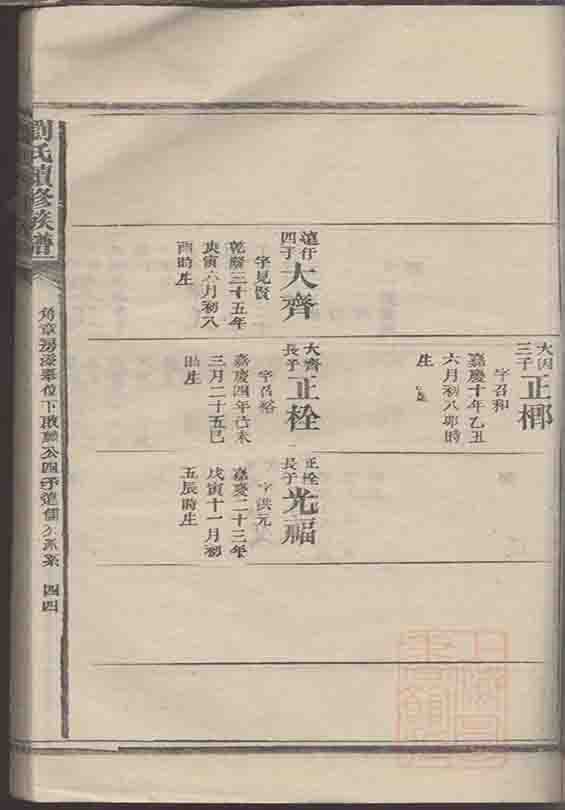 大因
三子
正梛
字召和
嘉慶十年乙丑
六月初八卯時
生
遠仔
四子
大齊
字見賢
乾隆三十五年
庚寅六月初八
酉時生
大齊
長子
正栓
字召裕
嘉慶四年己未
三月二十五巳
時生
正栓
長子
光福
字洪元
嘉慶二十三年
戊寅十一月初
五辰時生
劉氏續修族譜
四四